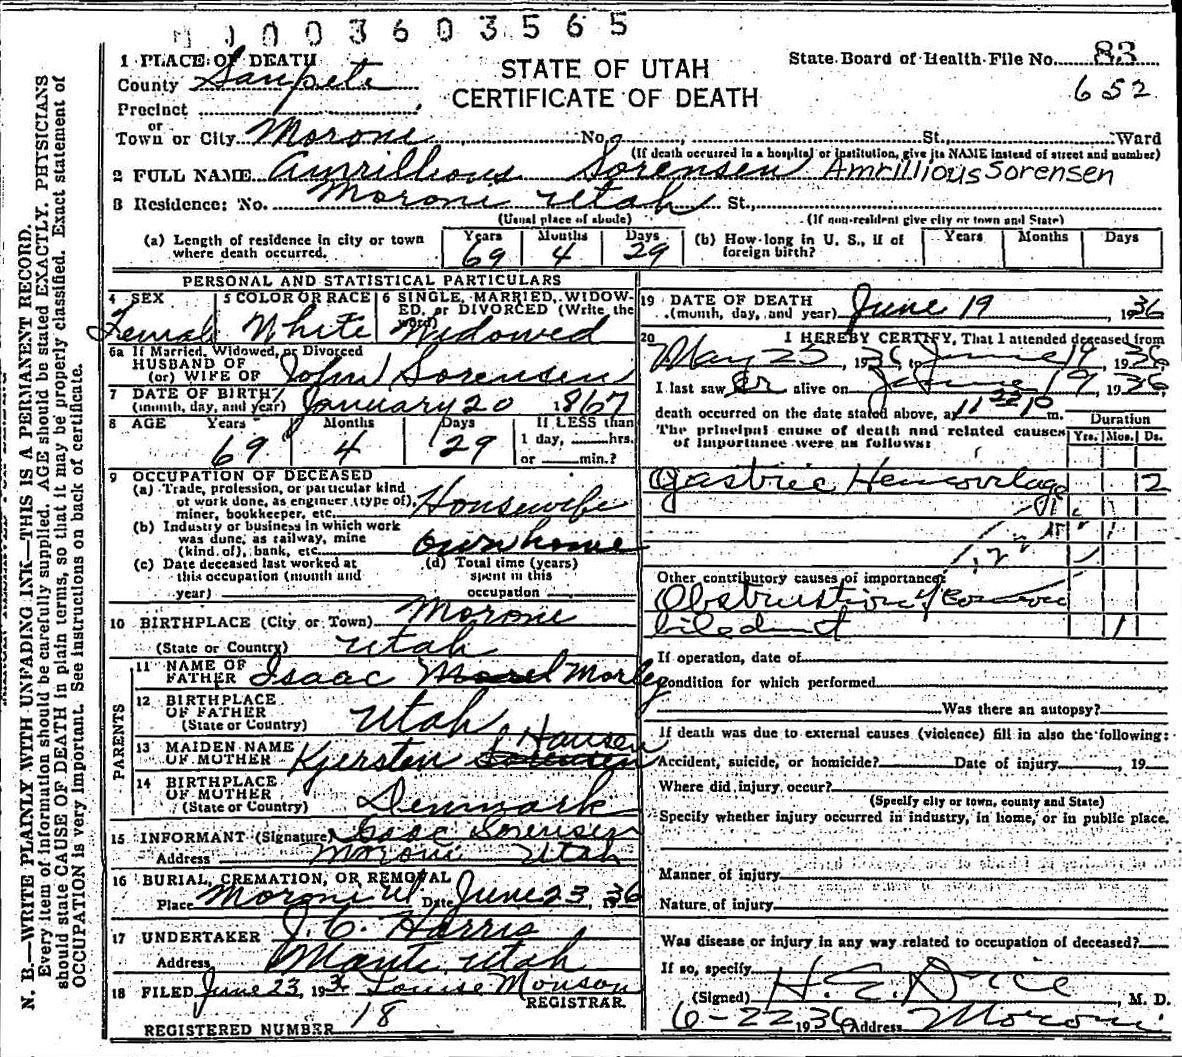 0003603565
1 PLACE OF DEATH
County Sanpete
Precinct
STATE OF UTAH
CERTIFICATE OF DEATH
State Board of Health File No. 83
652
or
Town or City Moroni No. St., Ward
(If death occurred in a hospital or institution, give its NAME instead of street and number)
2 FULL NAME Amrillious Sorensen Amrillious Sorensen
3 Residence: No. Moroni Utah St.,
(Usual place of abode) (If non-resident give city or town and State)
(a) Length of residence in city or town where death occurred. Years 69 Months 4 Days 29
(b) How long in U. S., if of foreign birth? Years Months Days
PERSONAL AND STATISTICAL PARTICULARS
4 SEX Female
5 COLOR OR RACE White
6 SINGLE, MARRIED, WIDOWED, or DIVORCED (Write the word) Widowed
6a If Married, Widowed, or Divorced
HUSBAND OF
(or) WIFE OF John Sorensen
7 DATE OF BIRTH
(month, day, and year) January 20 1867
8 AGE Years 69 Months 4 Days 29 If LESS than 1 day, hrs. or min.?
9 OCCUPATION OF DECEASED
(a) Trade, profession, or particular kind of work done, as engineer (type of), miner, bookkeeper, etc. Housewife
(b) Industry or business in which work was done, as railway, mine (kind of), bank, etc. own home
(c) Date deceased last worked at this occupation (month and year)
(d) Total time (years) spent in this occupation
10 BIRTHPLACE (City or Town) Moroni
(State or Country) Utah
PARENTS
11 NAME OF FATHER Isaac Morley
12 BIRTHPLACE OF FATHER
(State or Country) Utah
13 MAIDEN NAME OF MOTHER Kjersten Sorensen Hansen
14 BIRTHPLACE OF MOTHER
(State or Country) Denmark
15 INFORMANT (Signature) Isaac Sorensen
Address Moroni Utah
16 BURIAL, CREMATION, OR REMOVAL
Place Moroni Ut. Date June 23, 1936
17 UNDERTAKER J. C. Harris
Address Manti Utah
18 FILED June 23, 193 Louise Monson
REGISTRAR.
REGISTERED NUMBER 18
19 DATE OF DEATH
(month, day, and year) June 19 1936
20 I HEREBY CERTIFY, That I attended deceased from
May 25, 1936, to June 19, 1936
I last saw er alive on June 19, 1936
death occurred on the date stated above, at 11 P m.
The principal cause of death and related causes of importance were as follows:
Duration
Yrs. Mos. Ds.
Gastric Hemorrhage 2
Other contributory causes of importance:
Obstruction of Common
bile duct 1
If operation, date of
Condition for which performed
Was there an autopsy?
If death was due to external causes (violence) fill in also the following:
Accident, suicide, or homicide? Date of injury , 19
Where did injury occur?
(Specify city or town, county and State)
Specify whether injury occurred in industry, in home, or in public place.
Manner of injury
Nature of injury
Was disease or injury in any way related to occupation of deceased?
If so, specify
(Signed) H. E. Dice, M. D.
6-22 1936 (Address) Moroni
N. B.—WRITE PLAINLY WITH UNFADING INK—THIS IS A PERMANENT RECORD.
Every item of information should be carefully supplied. AGE should be stated EXACTLY. PHYSICIANS
should state CAUSE OF DEATH in plain terms, so that it may be properly classified. Exact statement of
OCCUPATION is very important. See instructions on back of certificate.